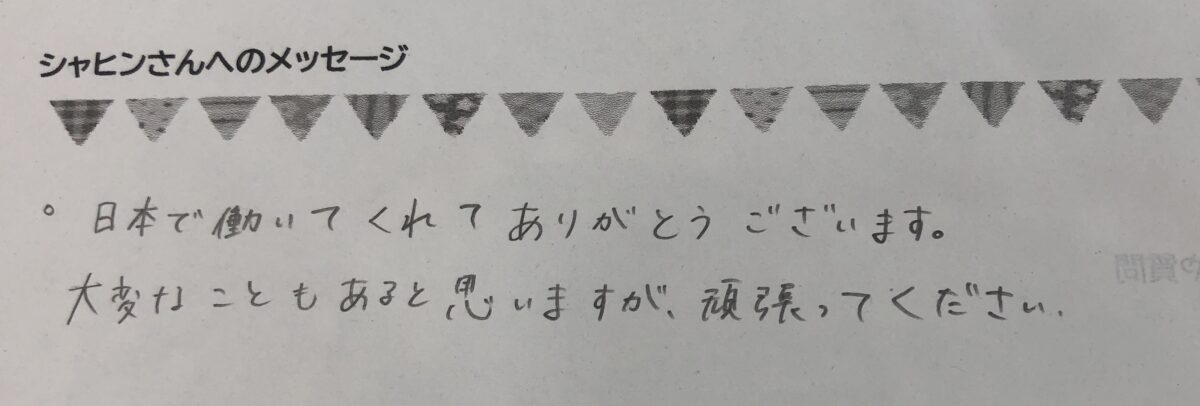 シャヒンさんへのメッセージ
。日本で働いてくれてありがとうございます。
大変なこともあると思いますが、頑張ってください.
や質問